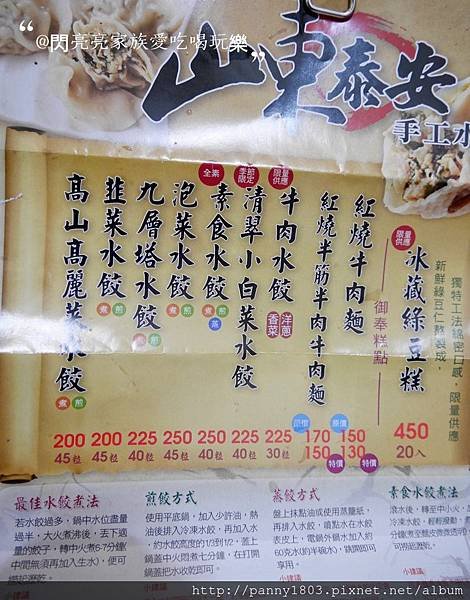 “@閃亮亮家族愛吃喝玩樂„
山東泰安
手工水
獨特工法綿密口感，限量供應
新鮮綠豆仁熬製成，
限量供應
冰藏綠豆糕
450
20入
御奉糕點
紅燒牛肉麵
原價
150
130
特價
紅燒半筋半肉牛肉麵
原價
170
150
特價
限量供應
牛肉水餃
洋蔥
香菜
225
30粒
季節限定
清翠小白菜水餃
225
40粒
全素
素食水餃
煮 煎
蒸
250
40粒
泡菜水餃
煮 煎
250
45粒
九層塔水餃
煮 煎
225
40粒
韭菜水餃
煮 煎
200
45粒
高山高麗菜水餃
煮 煎
200
45粒
最佳水餃煮法
若水餃過多，鍋中水位盡量
過半，大火煮沸後，丟下適
量的餃子，轉中火煮6-7分鐘(
中間無須再加入生水)，便可
撈起瀝乾。
小建議
煎餃方式
使用平底鍋，加入少許油，熱
油後排入冷凍水餃，再加入水
，約水餃高度的1/3到1/2，蓋上
鍋蓋中火悶煮七分鐘，在打開
鍋蓋以收水收乾即可。
小建議
蒸餃方式
盤上抹點油或使用蒸籠紙，
再排入水餃，噴點水在水餃
表皮上，電鍋外鍋水加入約
60克水(約半碗水)，跳開即可
享用。
小建議
素食水餃煮法
滾水後，轉至中小火，
冷凍水餃，輕輕撥動，
http://panny1803.pixnet.net/album